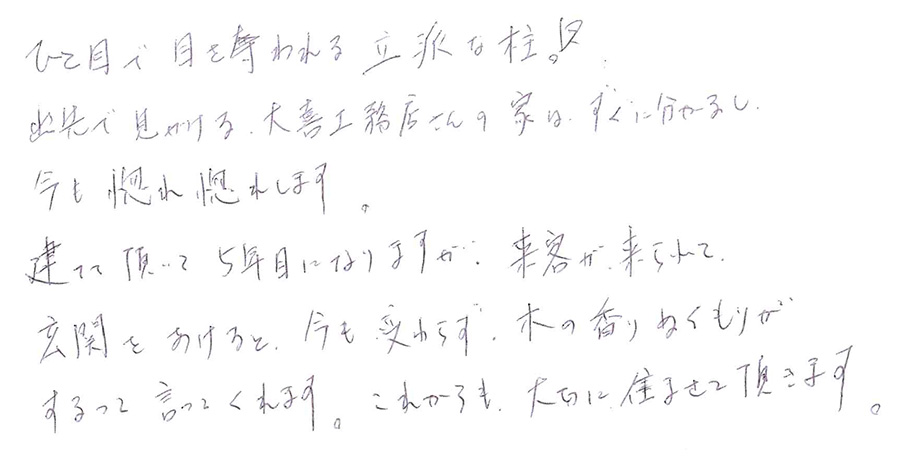 ひと目で目を奪われる立派な柱!!
出先で見かける、大喜工務店さんの家は、すぐに分かるし、
今も惚れ惚れします。
建てて頂いて5年目になりますが、来客が来られて、
玄関をあけると、今も変わらず、木の香りぬくもりが
するって言ってくれます。これからも、大切に住ませて頂きます。